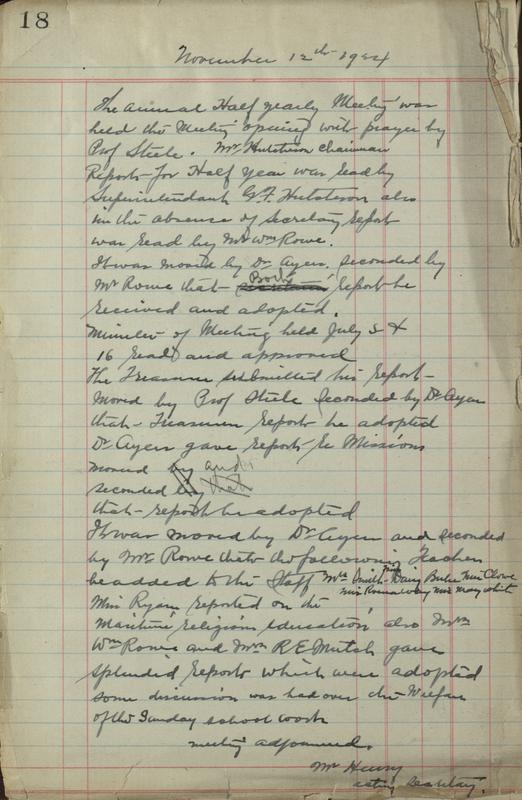 18
November 12th 1924
The annual Half yearly Meeting was
held the Meeting opening with prayer by
Prof Steele. Mr Hutcheson Chairman
Reports for Half Year was read by
Superintendant G.F. Hutcheson also
in the absence of secretary report
was read by Mr Wm Rowe.
It was moved by Dr Ayers. seconded by
Mr Rowe that Both report be
received and adopted.
Minutes of Meeting held July 2 &
16 read and approved
The Treasurer submitted his report
Moved by Prof Steele seconded by Dr Ayers
that Treasurer Report be adopted
Dr Ayers gave report Re Missions
moved by and
seconded by that
that report be adopted
It was moved by Dr Ayers and seconded
by Mr Rowe that the following Teachers
be added to the Staff Mrs Smith Miss Clowe
Miss May White
Miss Ryan reported on the
Maritime religious education, also Mrs
Wm Rowe and Mrs R E Mutch gave
splendid reports which were adopted
some discussion was had over the Welfare
of the Sunday school work
meeting adjourned.
Mr Henry
acting Secretary.